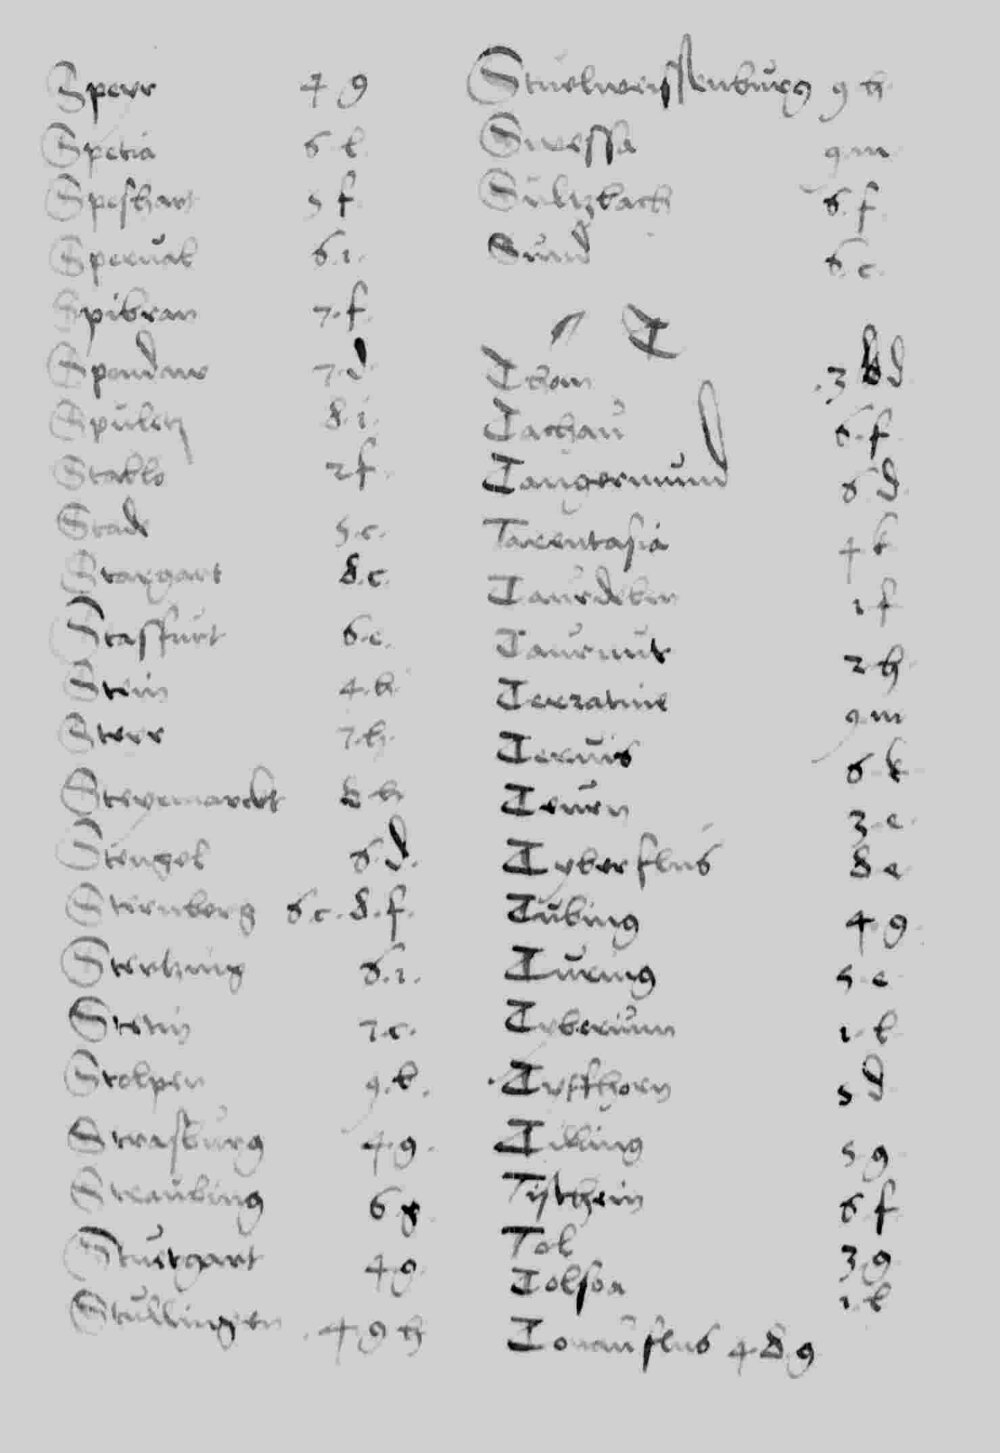 Speyr 4 g
Spetia 6 l.
Speshart 5 f.
Speruab 6. i.
Spibran 7. f.
Spondaw 7. d.
Spuletz 8. i.
Stablo 2 f.
Stade 5. c.
Stargart 8. c.
Stasfurt 6. e.
Stein 4. h.
Steyr 7. h.
Steyrmarckt 8 h
Stengel 6 d.
Sternberg 6. c. 8. f.
Stertzing 6. i.
Stetin 7. c.
Stolpen 9. b.
Strasburg 4. g.
Straubing 6 g.
Stutgart 4 g.
Stullingen . 4 g h
Stulweissenburg 9 h.
Suessa 9. m.
Sultzbach 6. f.
Sund 6. c.
T
.3 d
Tachau 6. f
Tangermund 6 d.
Tarentasia 4 k
1 f
2 h
Terratine 9 m
Teruis 6 k
3. e.
Tyberflus 8 e
Tubing 4 g.
Turing 5. e
Tyberium 1. l.
Tyffhorn 5 d
Tilling 5 g
6 f.
Tol 3. g
Tolosa 1. l
Tonauflus 4 8 g